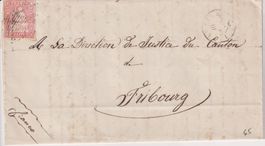 A La Direction de Justice du Canton
de
Fribourg
franco